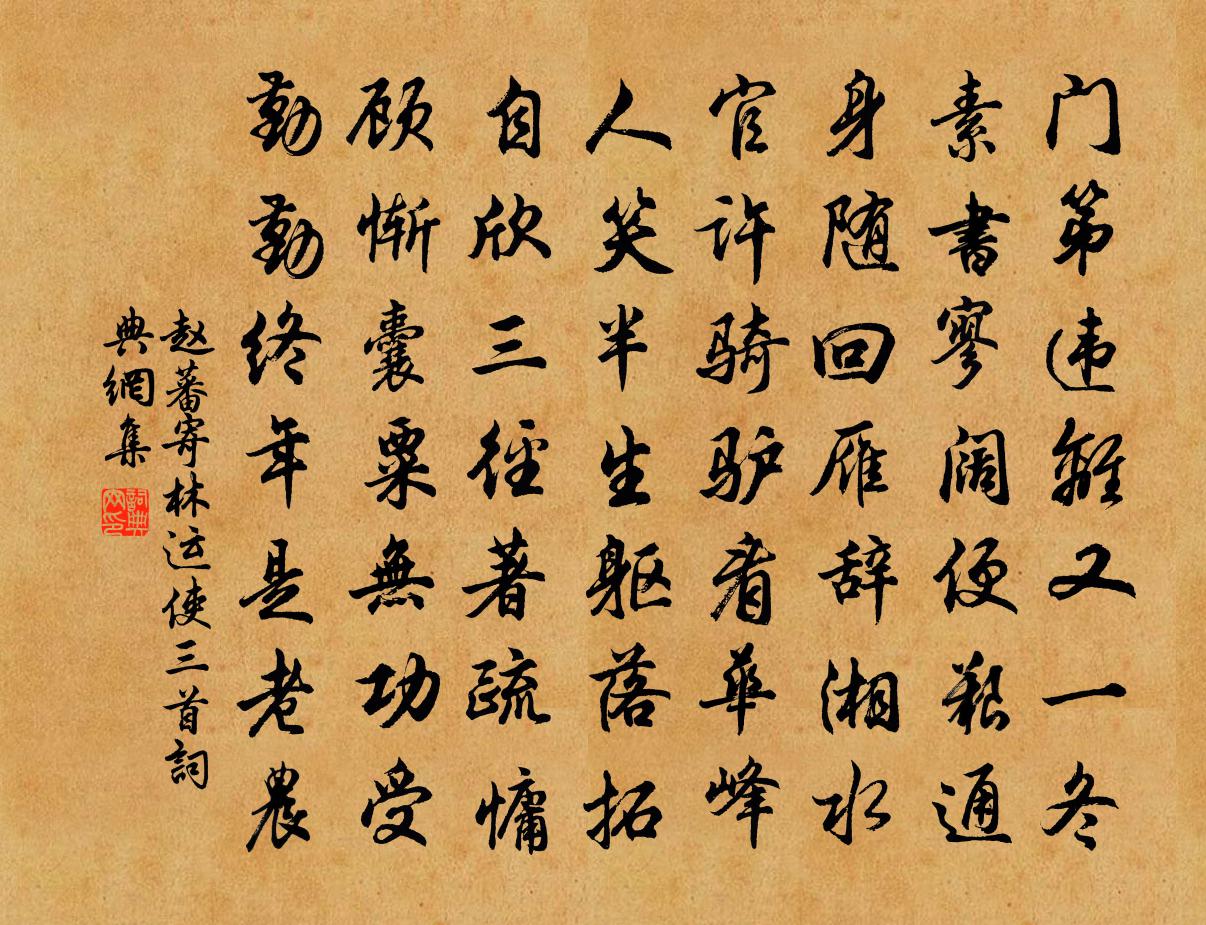 门第违離又一冬
素書寥阔便艱通
身随回雁辞湘水
官许骑驴看華峰
人笑半生躯落拓
自欣三徑著疏慵
顾惭囊粟無功受
勤勤终年是老農
赵蕃寄林运使三首詞
典網集
詞典网印